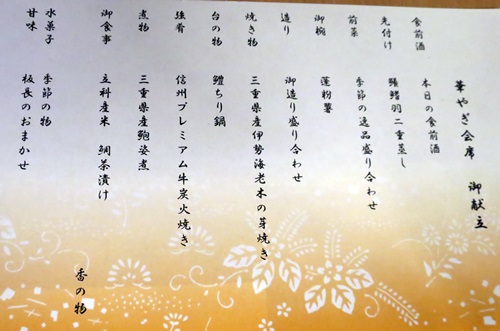 華やぎ会席 御献立
食前酒 本日の食前酒
先付け 鱶鰭羽二重蒸し
前菜 季節の逸品盛り合わせ
御椀 蓮粉薯
造り 御造り盛り合わせ
焼き物 三重県産伊勢海老木の芽焼き
台の物 鱧ちり鍋
強肴 信州プレミアム牛炭火焼き
煮物 三重県産鮑姿煮
御食事 立科産米 鯛茶漬け 香の物
水菓子 季節の物
甘味 板長のおまかせ